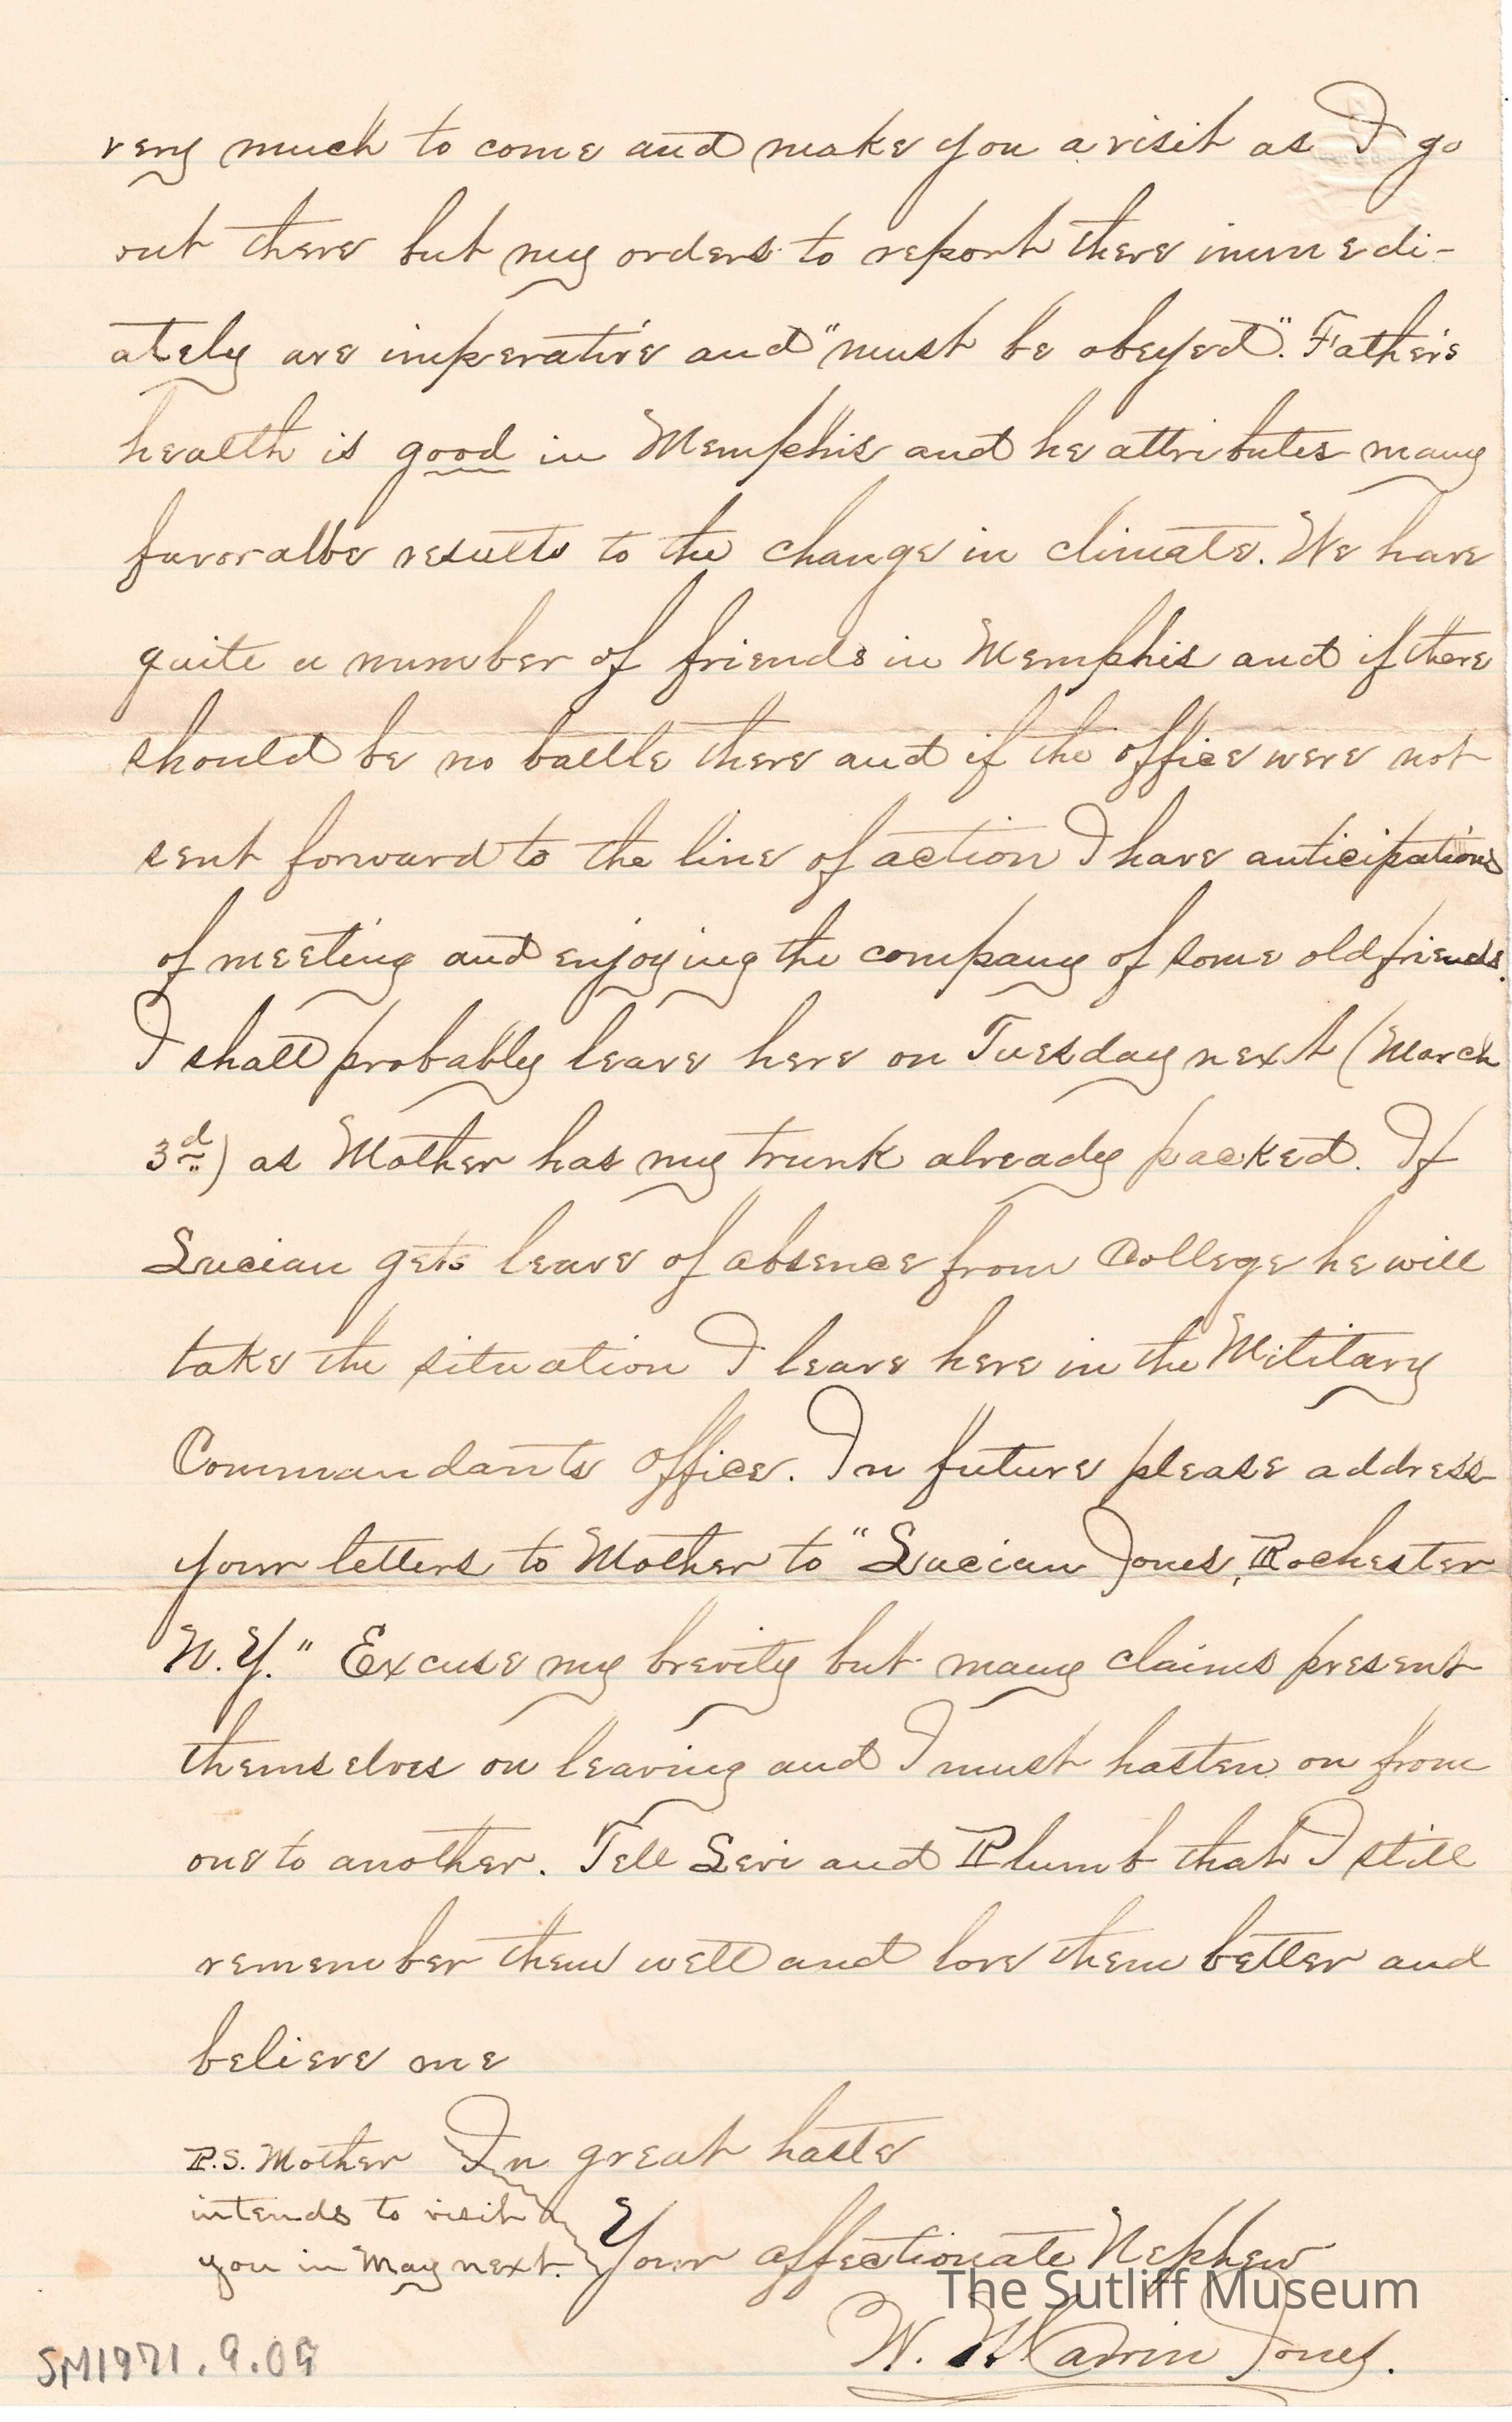 very much to come and make you a visit as I go
out there but my orders to report there immedi-
ately are imperative and "must be obeyed". Father's
health is good in Memphis and he attributes many
favoralbe results to the change in climate. We have
quite a number of friends in Memphis and if there
should be no battle there and if the office were not
sent forward to the line of action I have anticipations
of meeting and enjoying the company of some old friends.
I shall probably leave here on Tuesday next (March
3d) as Mother has my trunk already packed. If
Lucian gets leave of absence from College he will
take the situation I leave here in the Military
Commandants office. In future please address
your letters to Mother to "Lucian Jones, Rochester
N.Y." Excuse my brevity but many claims present
themselves on leaving and I must hasten on from
one to another. Tell Levi and Plumb that I still
remember them well and love them better and
believe me
In great haste
Your affectionate Nephew
W. Jones.
P.S. Mother
intends to visit
you in May next.
The Sutliff Museum
SM1971.9.09